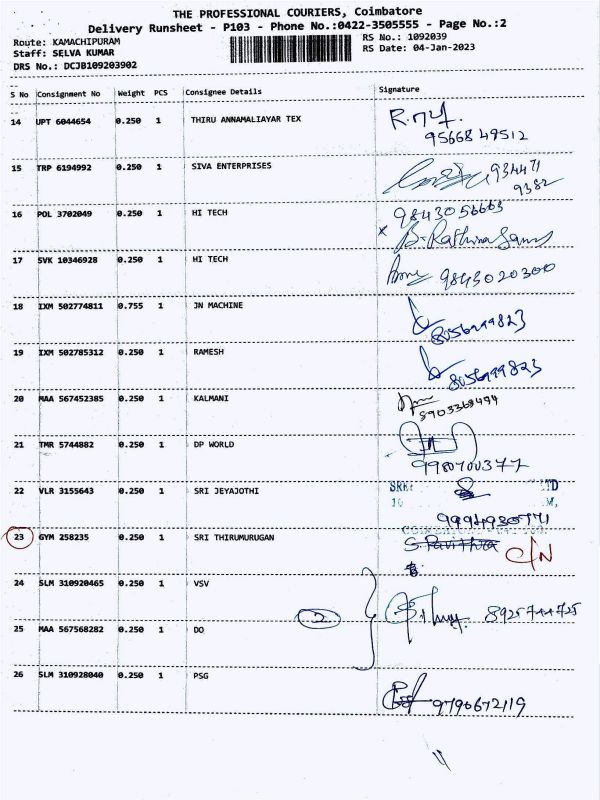 THE PROFESSIONAL COURIERS, Coimbatore
Delivery Runsheet - P103 - Phone No.:0422-3505555 - Page No.:2
Route: KAMACHIPURAM
Staff: SELVA KUMAR
DRS No.: DCJB109203902
RS No.: 1092039
RS Date: 04-Jan-2023
S No Consignment No Weight PCS Consignee Details Signature
14 UPT 6044654 0.250 1 THIRU ANNAMALIAYAR TEX
95668 49512
15 TRP 6194992 0.250 1 SIVA ENTERPRISES 934471
9382
16 POL 3702049 0.250 1 HI TECH 9843056663
x B. Rathina
17 SVK 10346928 0.250 1 HI TECH 9843020300
18 IXM 502774811 0.755 1 JN MACHINE
8056499823
19 IXM 502785312 0.250 1 RAMESH
8056499823
20 MAA 567452385 0.250 1 KALMANI
21 TMR 5744882 0.250 1 DP WORLD
9980700377
22 VLR 3155643 0.250 1 SRI JEYAJOTHI SREE LTD
23 GYM 258235 0.250 1 SRI THIRUMURUGAN S. Pavithra C/N
24 SLM 310920465 0.250 1 VSV
2 8925744725
25 MAA 567568282 0.250 1 DO
26 SLM 310928040 0.250 1 PSG
9790672119